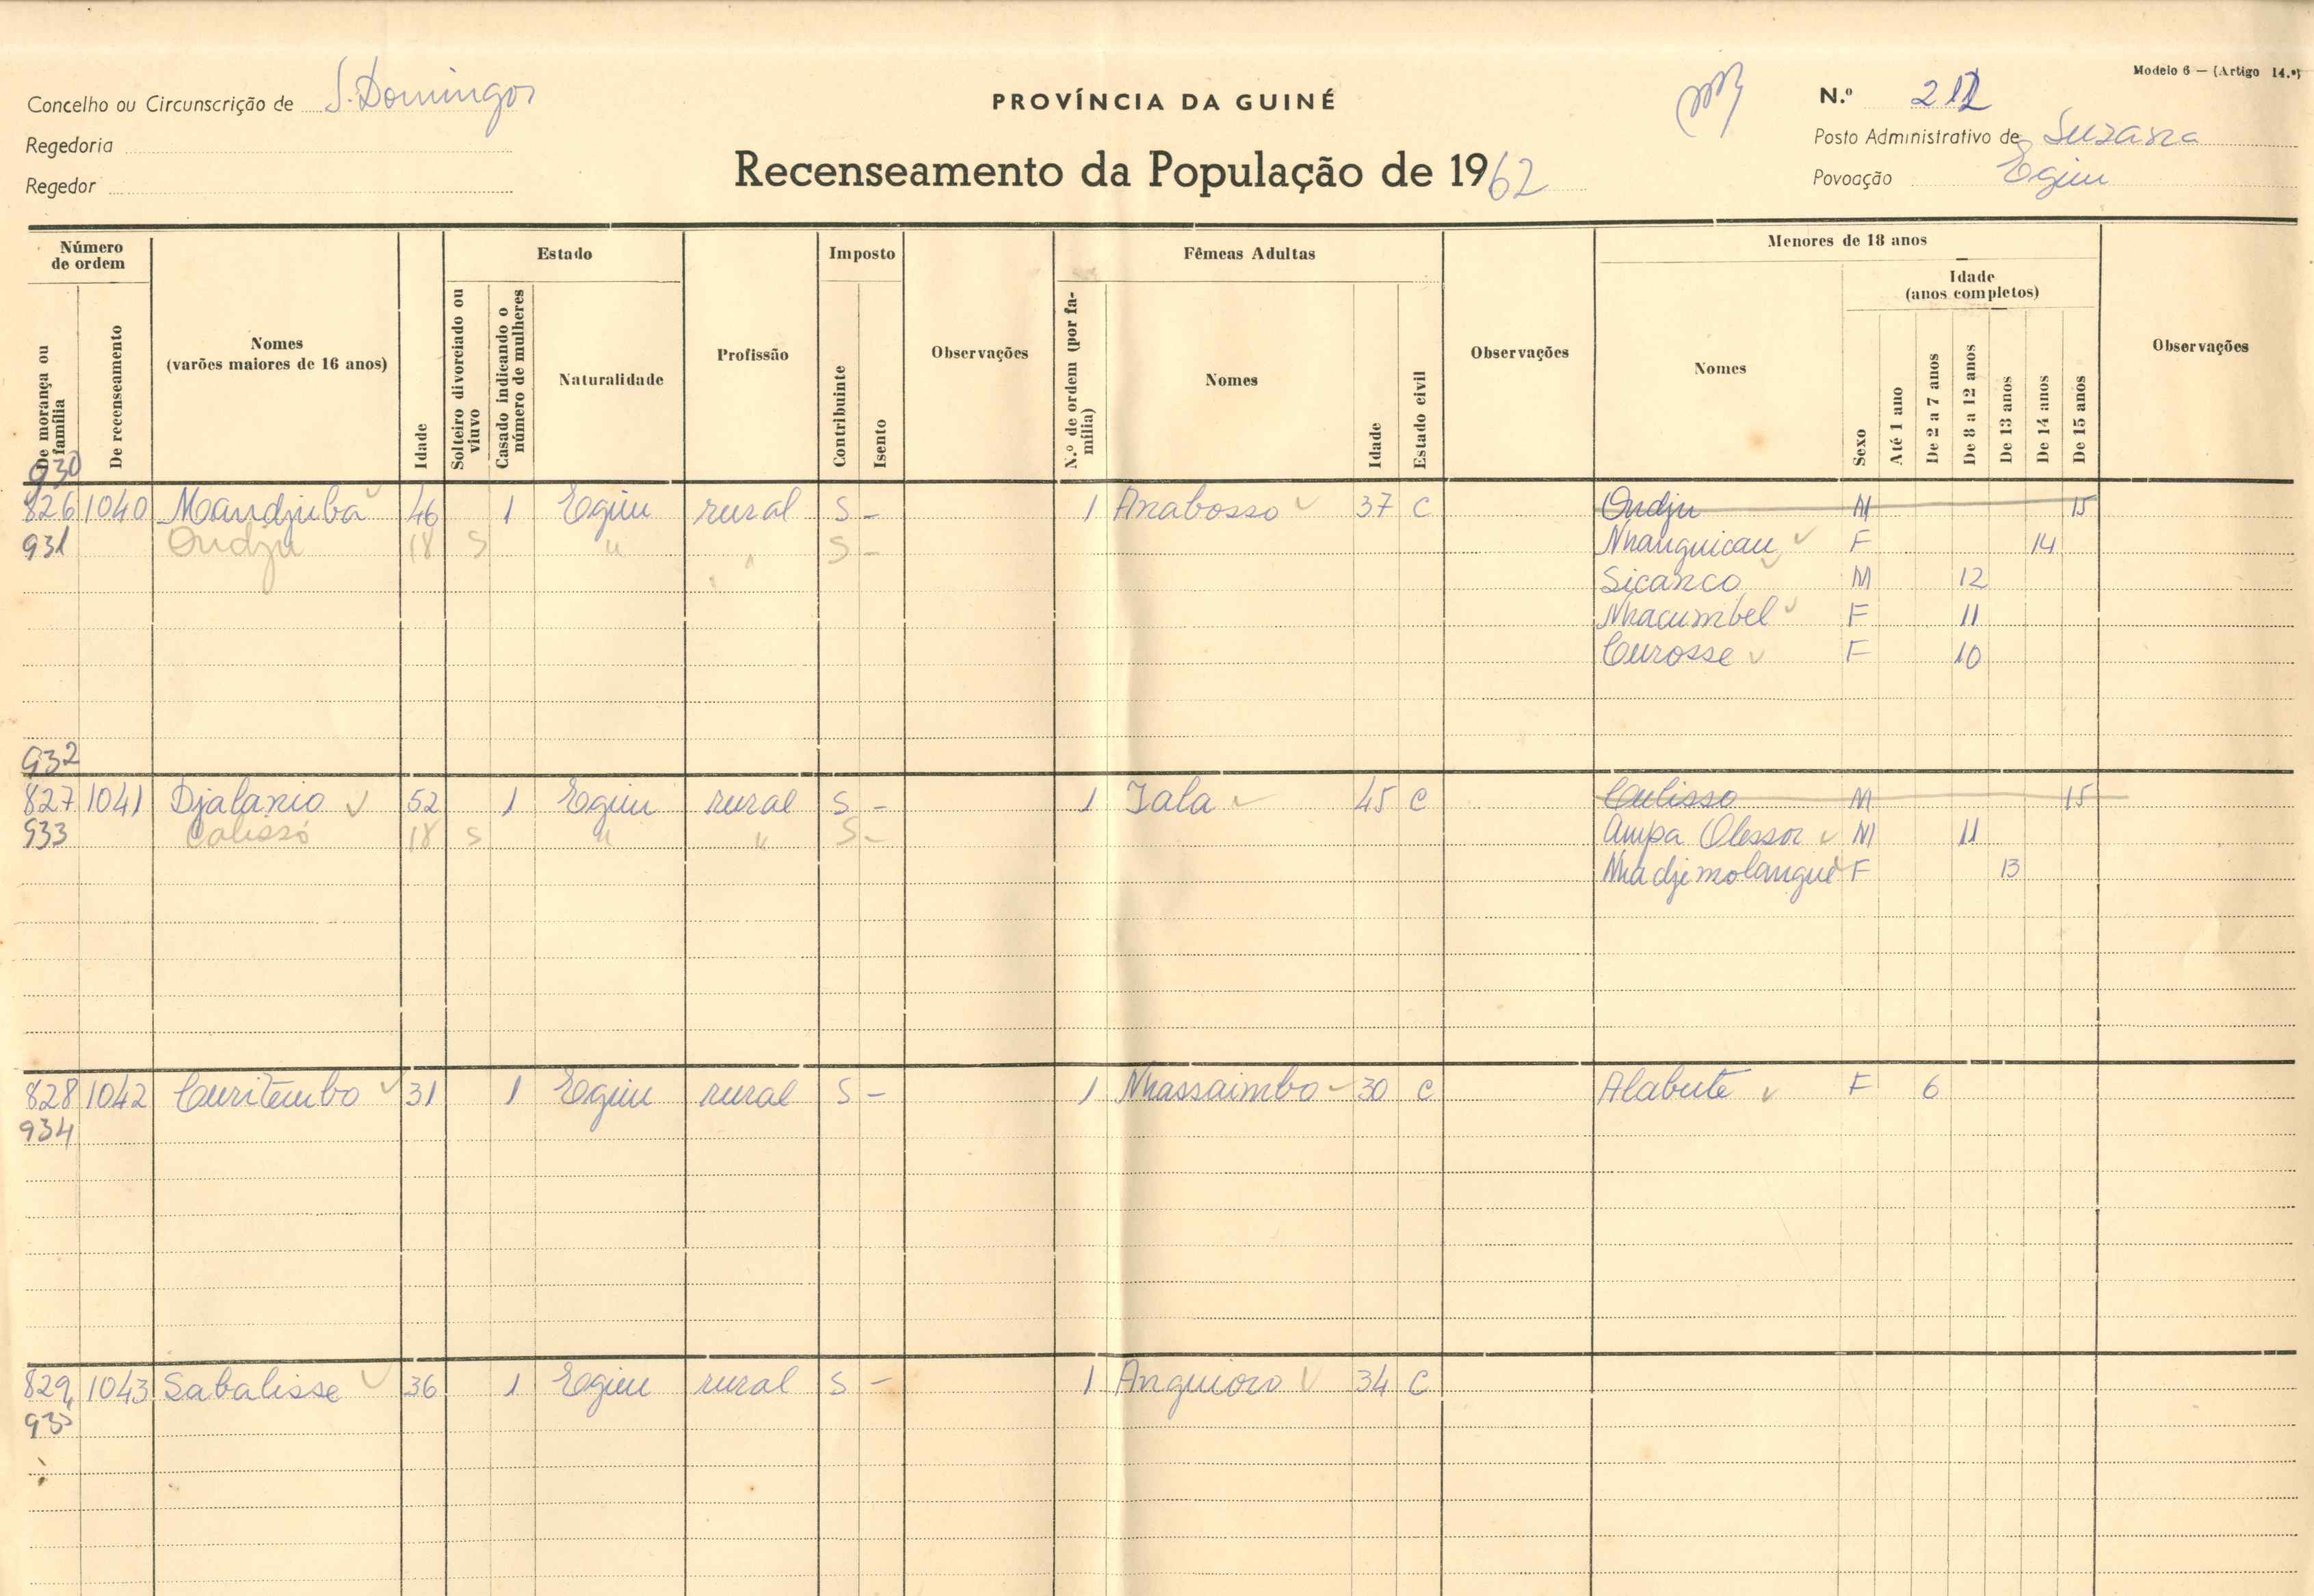 Modelo 6 — (Artigo 14.º)
Concelho ou Circunscrição de S. Domingos
PROVÍNCIA DA GUINÉ
N.º 212
Regedoria
Posto Administrativo de Suzana
Recenseamento da População de 1962
Regedor
Povoação Egim
Número de ordem
Estado
Imposto
Fêmeas Adultas
Menores de 18 anos
Idade (anos completos)
De morança ou família
De recenseamento
Nomes (varões maiores de 16 anos)
Idade
Solteiro divorciado ou viuvo
Casado indicando o número de mulheres
Naturalidade
Profissão
Contribuinte
Isento
Observações
N.º de ordem (por família)
Nomes
Idade
Estado civil
Observações
Nomes
Sexo
Até 1 ano
De 2 a 7 anos
De 8 a 12 anos
De 13 anos
De 14 anos
De 15 anos
Observações
930
826 1040 Mandjuba 46 1 Egim rural S - 1 Anabosso 37 C Ondju M 15
931 Ondju 18 S " " S - Nhanguicau F 14
Sicanco M 12
Nhacumbel F 11
Curosse F 10
932
827 1041 Djalanio 52 1 Egim rural S - 1 Jala 45 C Culisso M 15
933 Calissó 18 S " " S - Ampa Olessor M 11
Nhadjimolangue F 13
828 1042 Curitembo 31 1 Egim rural S - 1 Nhassaimbo 30 C Alabute F 6
934
829 1043 Sabalisse 36 1 Egim rural S - 1 Anguioro 34 C
935